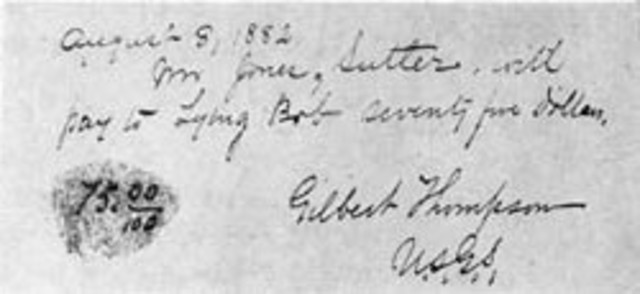 August 8, 1882
Mr Jones, Sutler, will
pay to Lying Bob seventy five Dollars.
75.00/100
Gilbert Thompson
U.S.G.S.